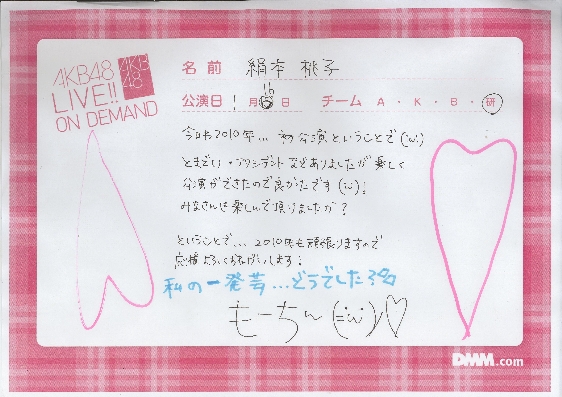 AKB48
LIVE!!
ON DEMAND
AKB
48
名前 絹本 桃子
公演日 1月 16 日 チーム A・K・B・研
今日は2010年... 初公演ということで(・ω・)
とまどい・アクシデントなどありましたが楽しく
公演ができたので良かたです(・ω・)!
みなさんは楽しんで頂けましたか?
ということで... 2010年も頑張りますので
応援よろしくおねがいします!
私の一発芸...どうでした?
もーちん(=・ω・)ノ♡
DMM.com